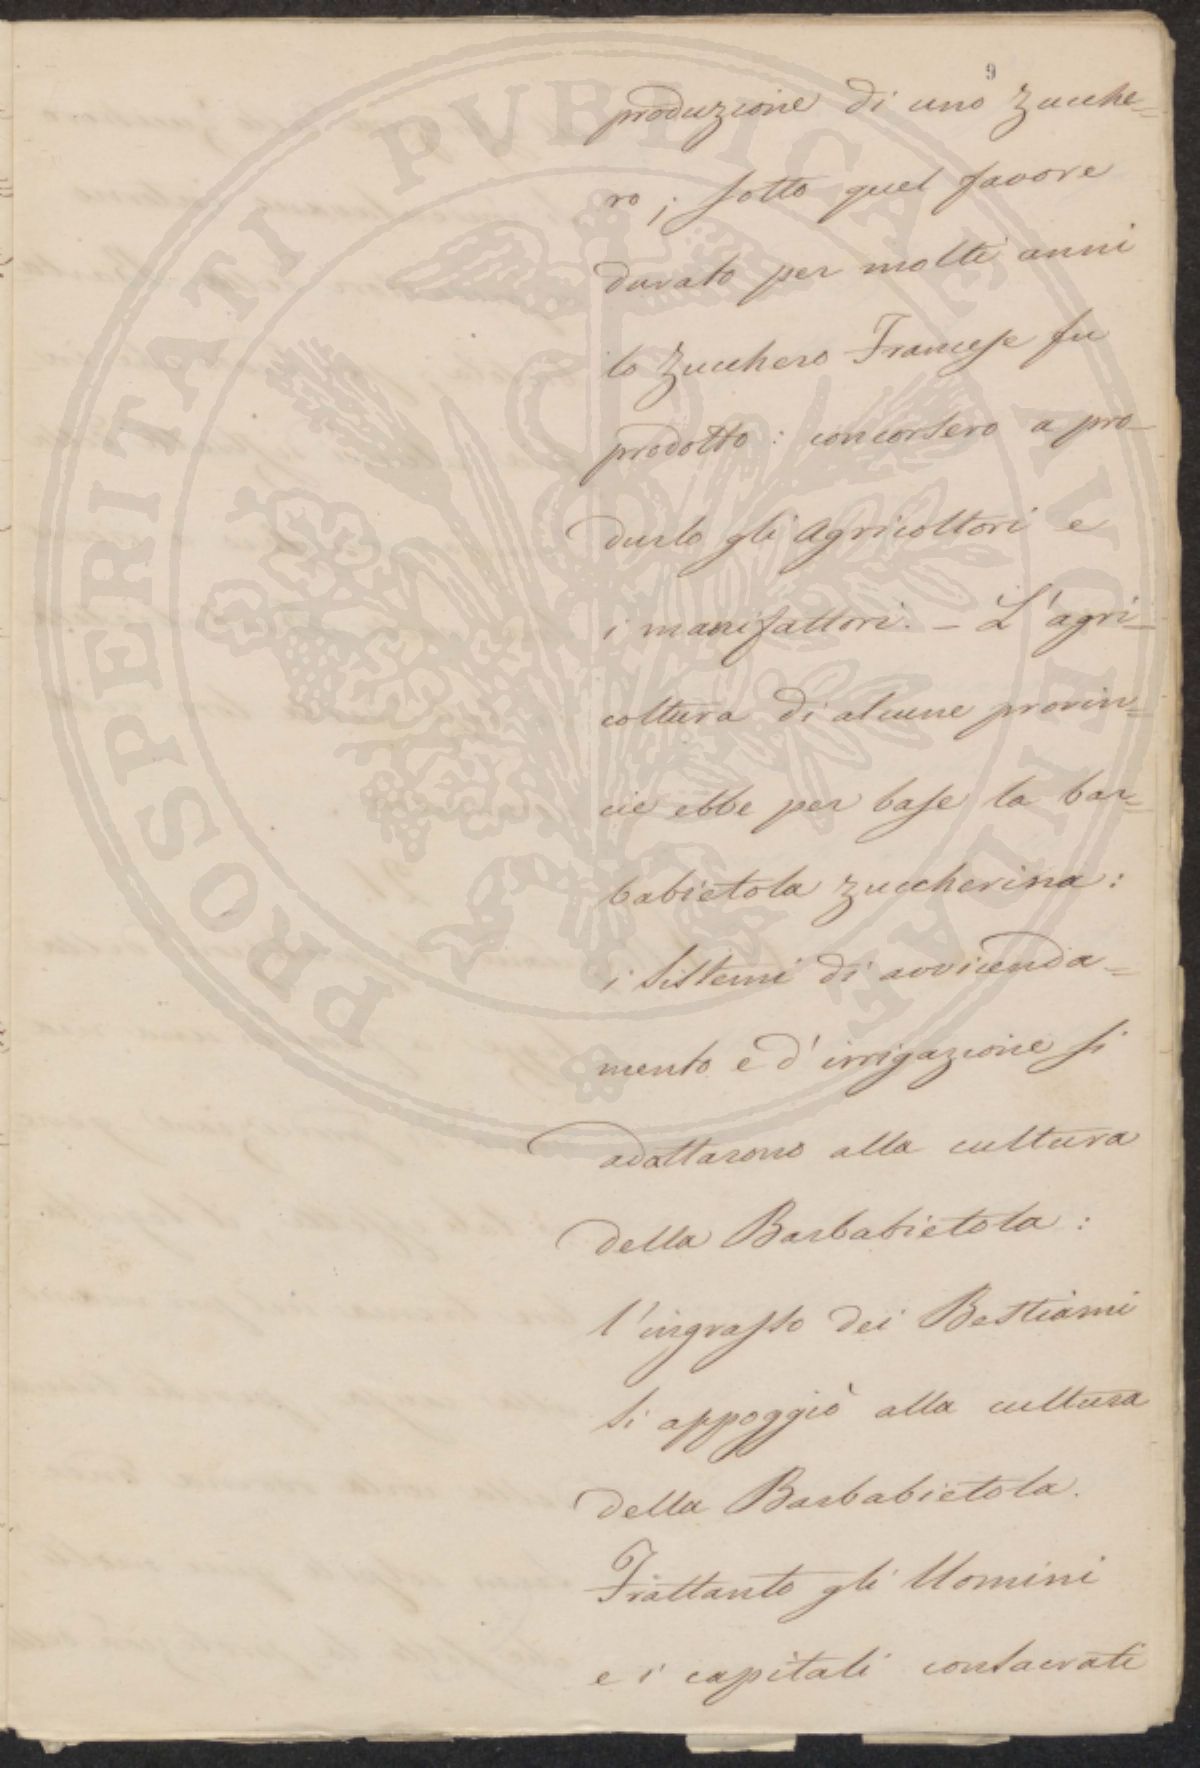 9
produzione di uno zucche=
ro; sotto quel favore
durato per molti anni
lo zucchero Francese fu
prodotto: concorsero a pro-
durlo gli agricoltori e
i manifattori. – L'agri-
coltura di alcune provin=
cie ebbe per base la bar=
babietola zuccherina:
i sistemi di avvicenda=
mento e d'irrigazione si
adattarono alla cultura
della Barbabietola:
l'ingrasso dei Bestiami
si appoggiò alla cultura
della Barbabietola.
Frattanto gli Uomini
e i capitali consacrati
PROSPERITATI PVBLICAE AVGENDAE